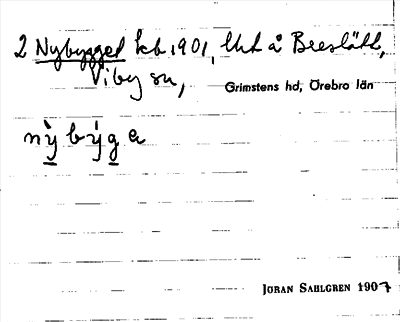 2 Nybygget kb 1901, lht å Breslätt,
Viby sn,
Grimstens hd, Örebro län
nỳbýge
JÖRAN SAHLGREN 1907